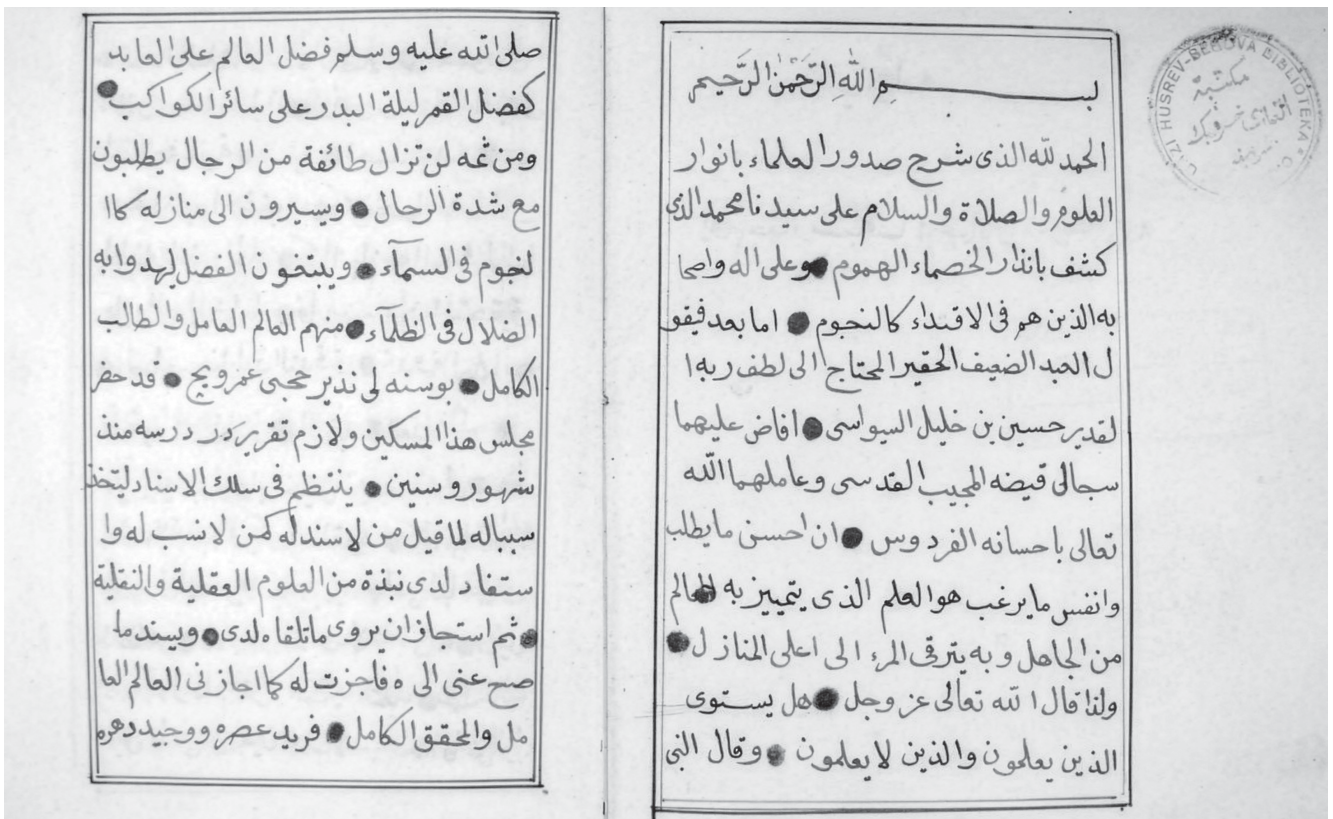 بسم الله الرَّحْمٰنِ الرَّحيم
الحمد لله الذى شرح صدور العلماء بانوار
العلوم والصلاة والسلام على سيدنا محمد الذى
كشف بانذار الخصماء الهموم وعلى اله واصحا
به الذين هم فى الاقتداء كالنجوم اما بعد فيقو
ل العبد الضعيف الحقير المحتاج الى لطف ربه ا
لقدير حسين بن خليل السيواسى افاض عليهما
سجال فيضه المجيب القدسى وعاملهما الله
تعالى باحسانه الفردوس ان احسن ما يطلب
وانفس ما يرغب هو العلم الذى يتمييز به العالم
من الجاهل وبه يترقى المرء الى اعلى المنازل
ولذا قال الله تعالى عز وجل هل يستوى
الذين يعلمون والذين لا يعلمون وقال النبى
صلى الله عليه وسلم فضل العالم على العابد
كفضل القمر ليلة البدر على سائر الكواكب
ومن ثمه لن تزال طائفة من الرجال يطلبون
مع شدة الرحال ويسيرون الى منازله كاا
لنجوم فى السمآء ويبتغون الفضل ليهدوا به
الضلال فى الظلمآء منهم العالم العامل والطالب
الكامل بوسنه لى نذير قد حضر
مجلس هذا المسكين ولازم تقرير درر درسه منذ
شهور وسنين ينتظم فى سلك الاسناد ليتخذ
سبباله لما قيل من لا سند له كمن لا نسب له وا
ستفاد لدى نبذة من العلوم العقلية والنقلية
ثم استجاز ان يروى ما تلقاه لدى ويسند ما
صح عنى الى ه فاجزت له كما اجازنى العالم العا
مل والمحقق الكامل فريد عصره ووحيد دهره
GAZI HUSREV-BEGOVA BIBLIOTEKA
مكتبة
الغازى خسروبك